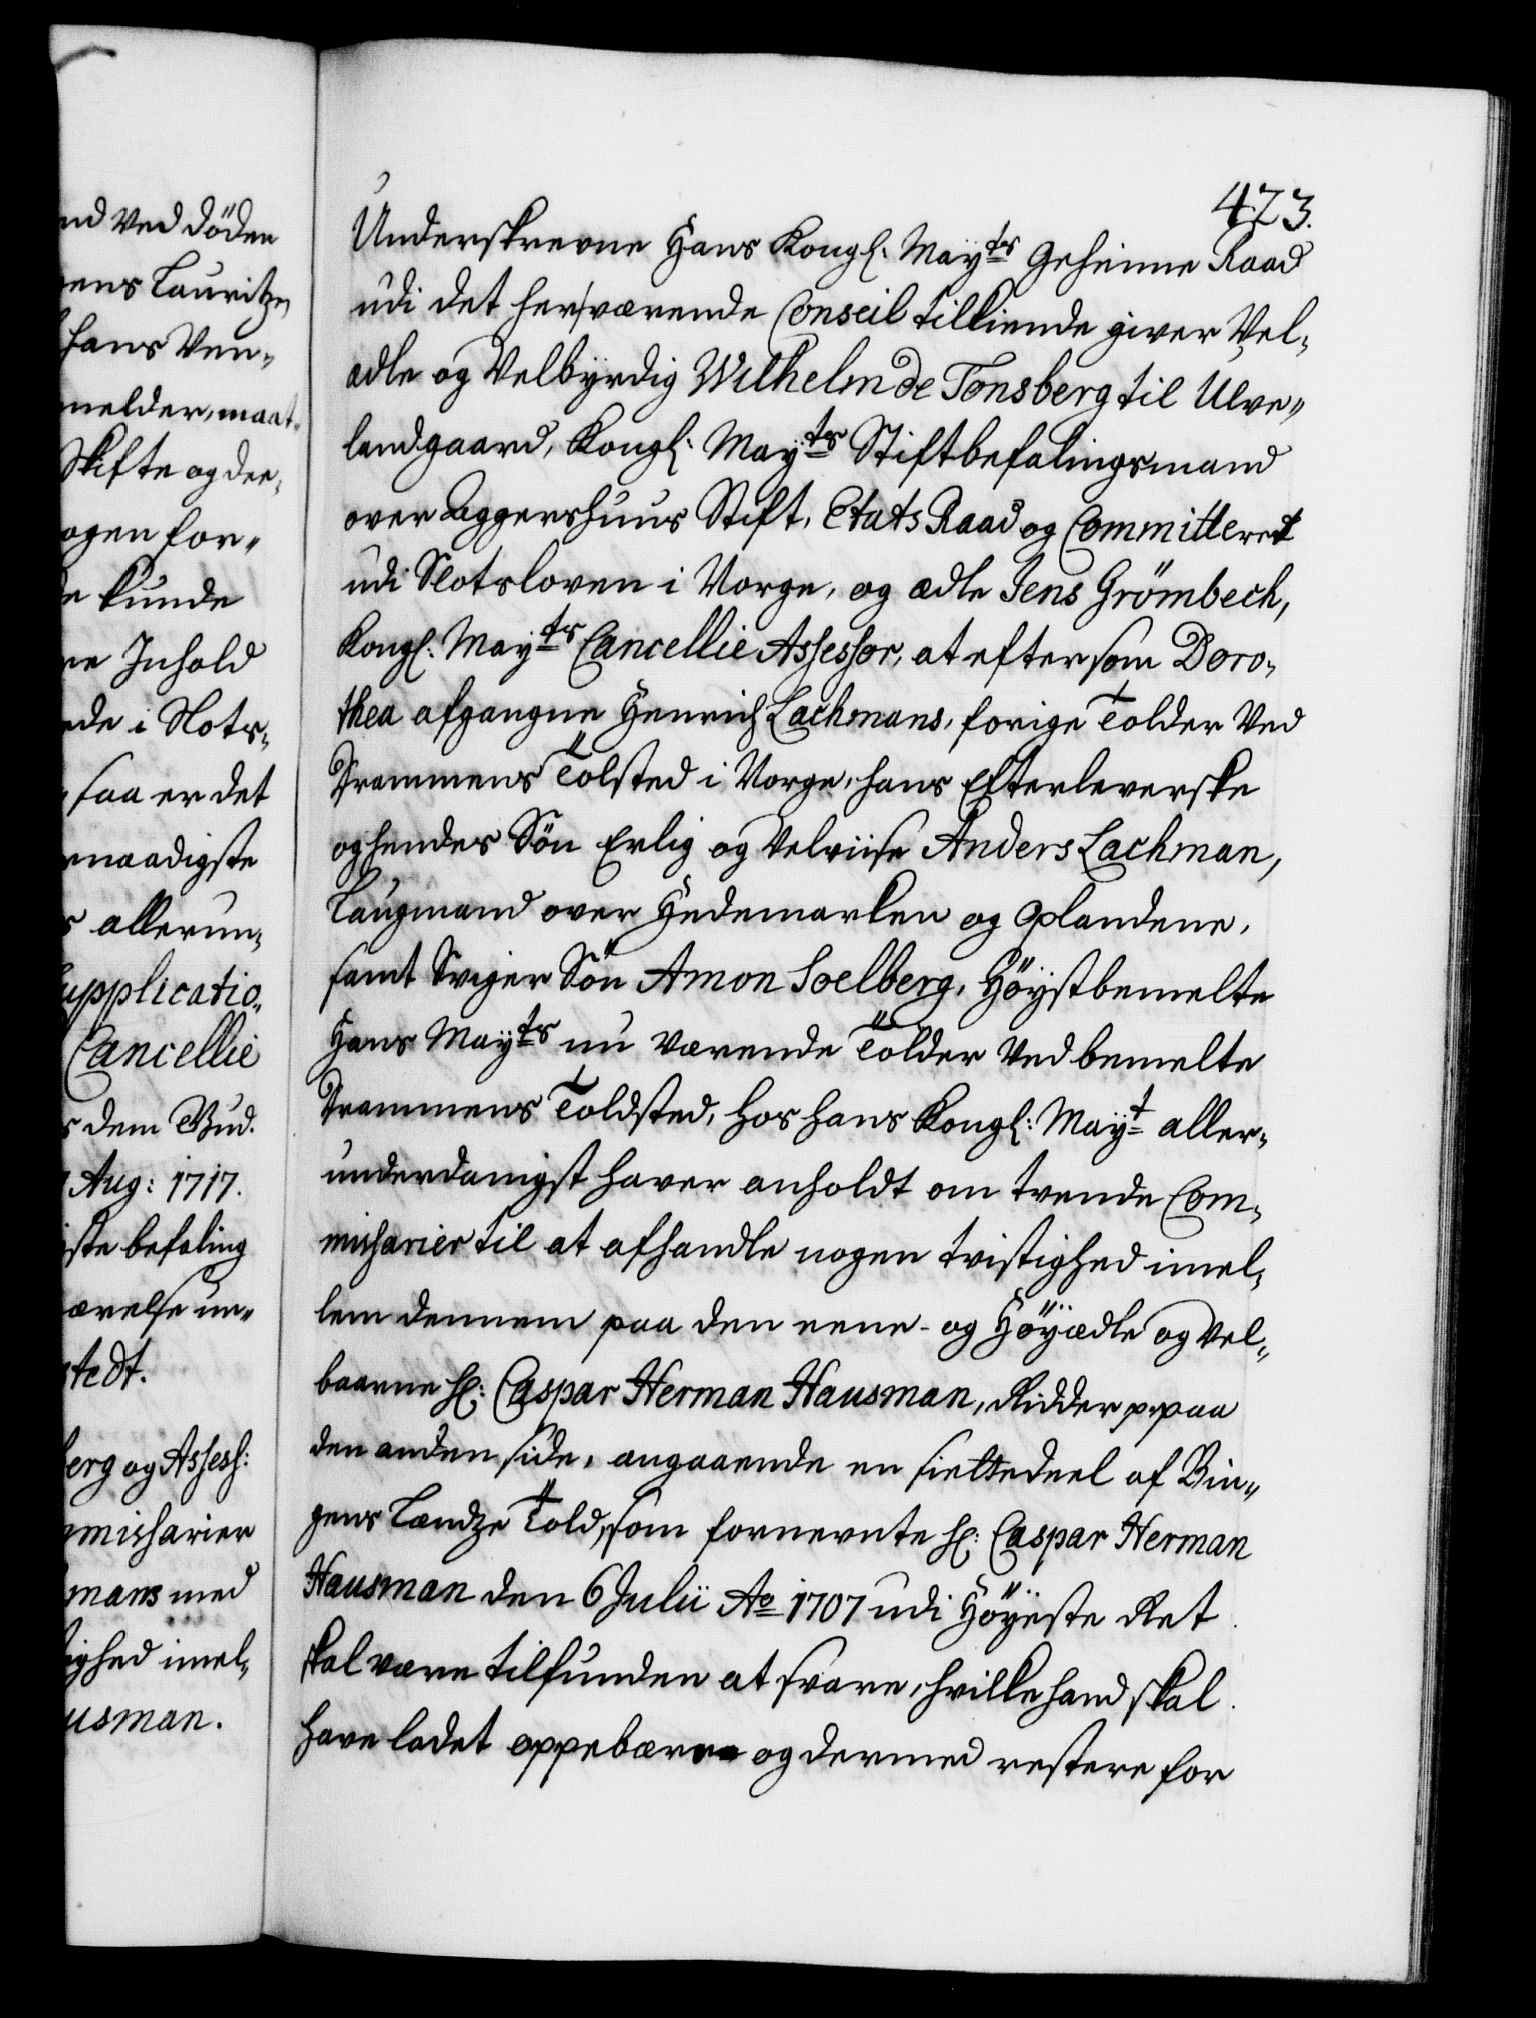 nd ved döden
ens Lauritzen
hans Ven-
melder, maat-
Skifte og dee-
ogen for-
e kunde
re Inhold
de i Slots-
saa er det
rnaadigste
s allerun-
upplicatio-
Cancellie
s dem Bud.
Aug: 1717.
ste befaling
ærelse un-
stedt.
berg og Assess:
mmissarier
mans med
ighed imel-
usman.
473.
Underskrevne Hans Kongl: Mayts Geheime Raad
udi det her værende Conseil tilkiende giver Vel-
ædle og Velbyrdig Wilhelm de Tonsberg til Ulve-
landgaard, Kongl: Mayts Stiftbefalingsmand
over Aggershuus Stift, Etats Raad og Committeret
udi Slotsloven i Norge, og ædle Jens Grömbech,
Kongl: Mayts Cancellie Assessor, at eftersom Doro-
thea afgangne Henrich Lachmans, forige Tolder ved
Drammens Tolsted i Norge, hans Efterleverske
og hendes Sön Erlig og Velviise Anders Lachman,
Laugmand over Hedemarken og Oplandene,
samt Sviger Sön Amon Soelberg, Höystbemelte
Hans Mayts nu værende Tolder ved bemelte
Drammens Toldsted, hos hans Kongl: Mayt aller-
underdanigst haver anholdt om tvende Com-
missarier til at afhandle nogen tvistighed imel-
lem dennem paa den eene- og Höyædle og Vel-
baarne Hr: Caspar Herman Hausman, Ridder p. paa
den anden side, angaaende en siettedeel af Bin-
gens Lendze Told, som fornevnte Hr: Caspar Herman
Hausman den 6 Julii Ao 1707 udi Höyeste Ret
skal være tilfunden at svare, hvilke hand skal
have ladet oppebære og dermed restere for